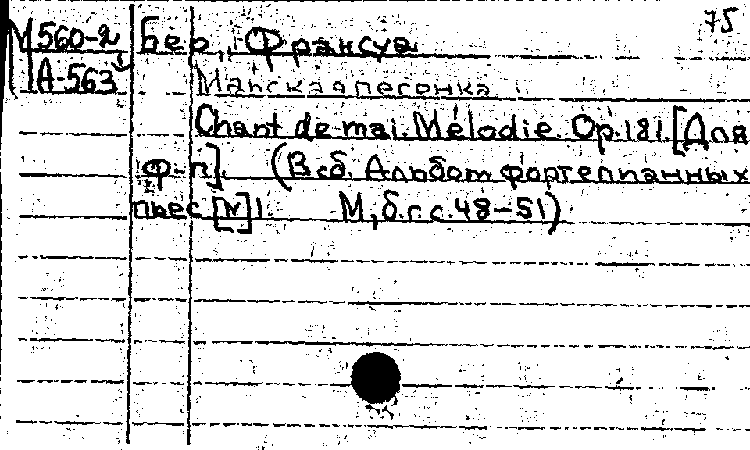 75
М 560-2 Бер, Франсуа
А-563 Майская песенка
Chant de mai. Mélodie. Op. 181. [Для
ф-п]. (В сб. Альбом фортепианных
пьес [№] 1. М, б.г. с. 48-51)